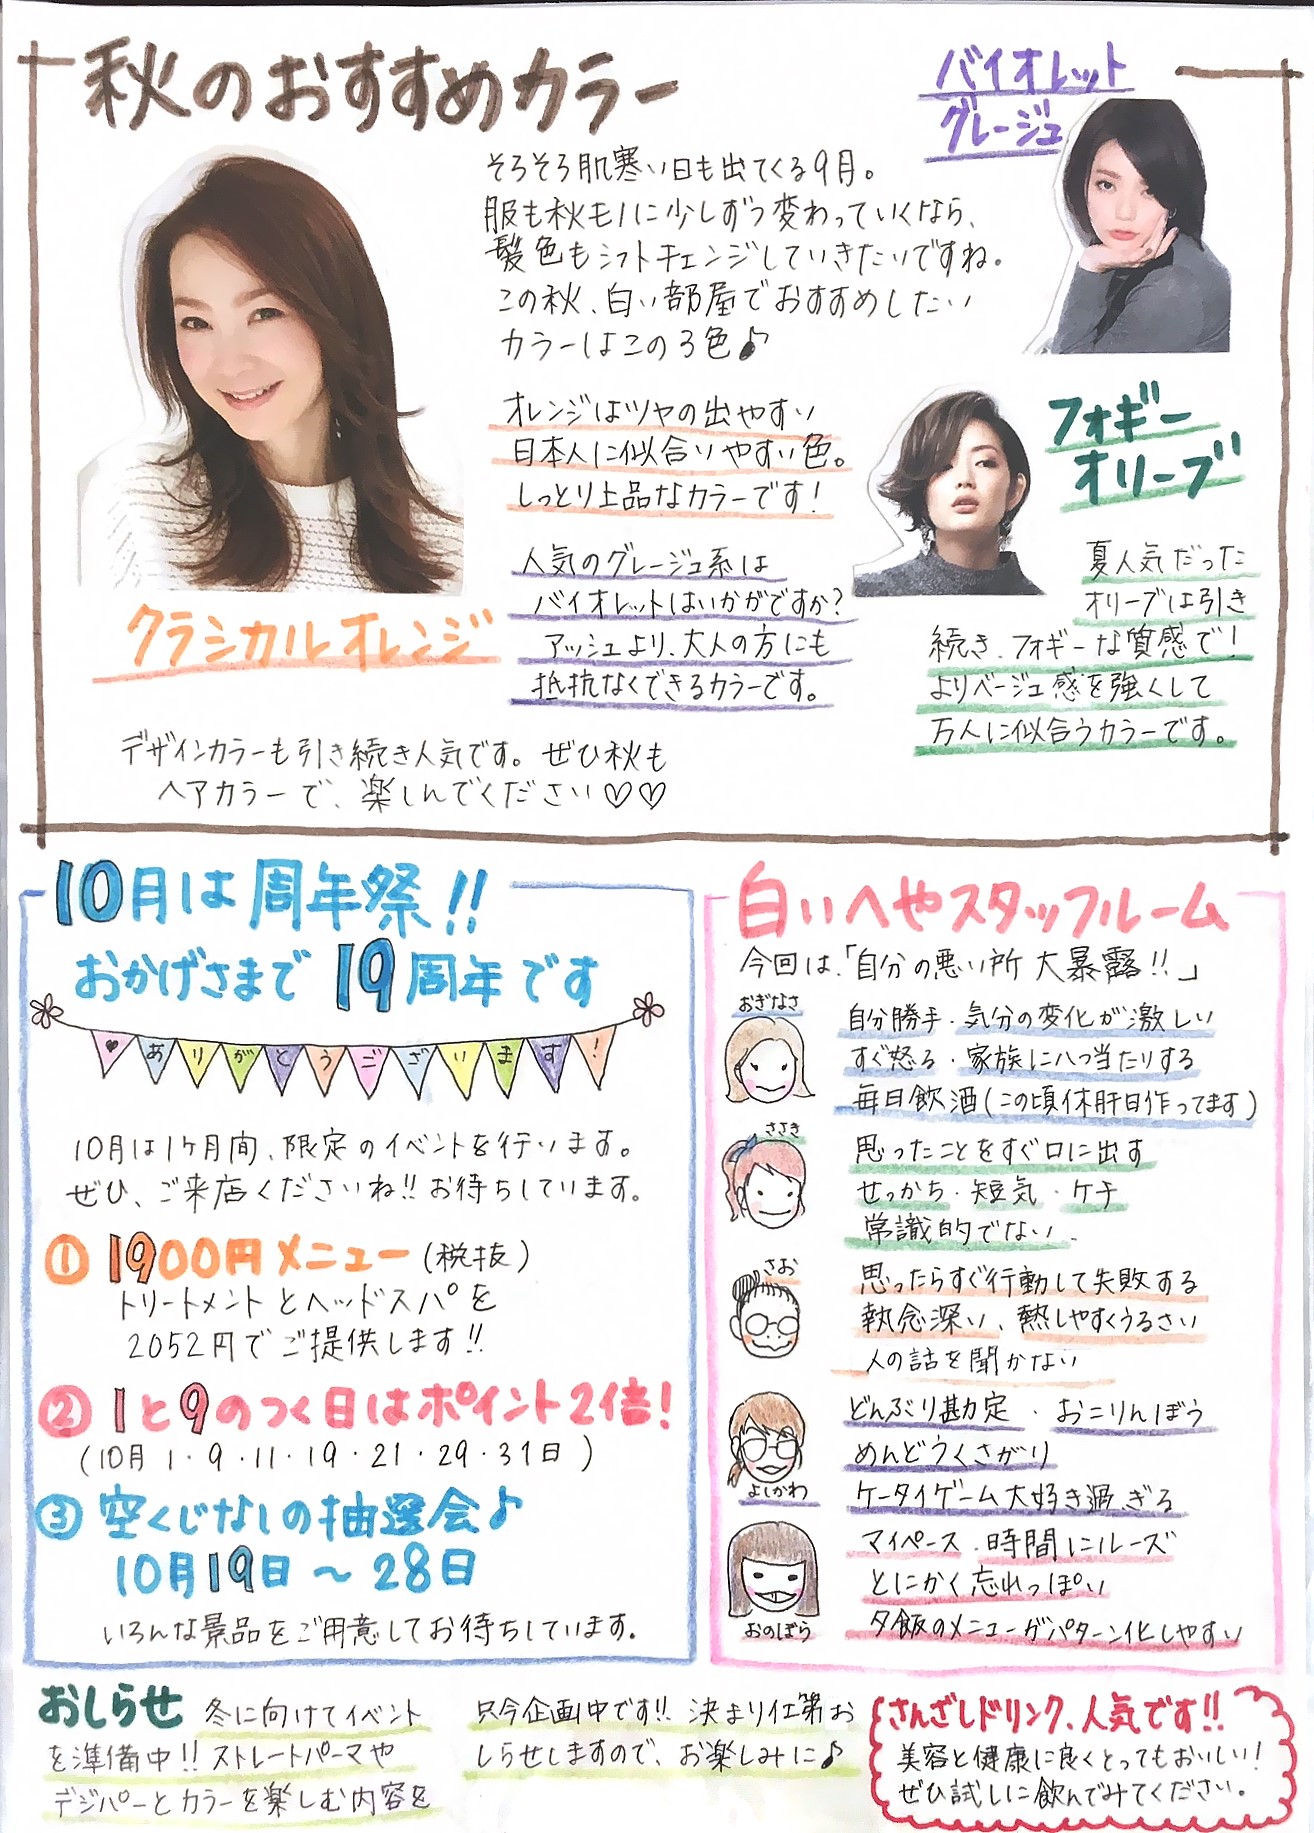 秋のおすすめカラー
そろそろ肌寒い日も出てくる9月。
服も秋モノに少しずつ変わっていくなら、
髪色もシフトチェンジしていきたいですね。
この秋、白い部屋でおすすめしたい
カラーはこの3色♪
バイオレット
グレージュ
オレンジはツヤの出やすい
日本人に似合いやすい色。
しっとり上品なカラーです!
クラシカルオレンジ
人気のグレージュ系は
バイオレットはいかがですか?
アッシュより、大人の方にも
抵抗なくできるカラーです。
フォギー
オリーブ
夏人気だった
オリーブは引き
続き、フォギーな質感で!
よりベージュ感を強くして
万人に似合うカラーです。
デザインカラーも引き続き人気です。ぜひ秋も
ヘアカラーで、楽しんでください♡♡
10月は周年祭!!
おかげさまで19周年です
♥ありがとうございます!
10月は1ヶ月間、限定のイベントを行います。
ぜひ、ご来店くださいね!!お待ちしています。
① 1900円メニュー(税抜)
トリートメントとヘッドスパを
2052円でご提供します!!
② 1と9のつく日はポイント2倍!
(10月 1・9・11・19・21・29・31日)
③ 空くじなしの抽選会♪
10月19日〜28日
いろんな景品をご用意してお待ちしています。
白いへやスタッフルーム
今回は、「自分の悪い所 大暴露!!」
おぎなさ
自分勝手・気分の変化が激しい
すぐ怒る・家族に八つ当たりする
毎日飲酒(この頃休肝日作ってます)
ささき
思ったことをすぐ口に出す
せっかち・短気・ケチ
常識的でない、
さお
思ったらすぐ行動して失敗する
執念深い、熱しやすくうるさい
人の話を聞かない
よしかわ
どんぶり勘定・おこりんぼう
めんどうくさがり
ケータイゲーム大好き過ぎる
おのぼら
マイペース・時間にルーズ
とにかく忘れっぽい
夕飯のメニューがパターン化しやすい
おしらせ 冬に向けてイベント
を準備中!!ストレートパーマや
デジパーとカラーを楽しむ内容を
只今企画中です!!決まり仕第お
しらせしますので、お楽しみに♪
さんざしドリンク、人気です!!
美容と健康に良くとってもおいしい!
ぜひ試しに飲んでみてください。